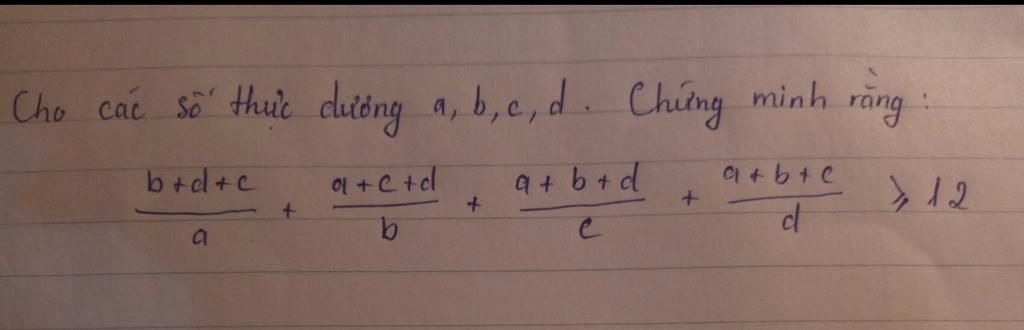 Cho các số thực dương a, b, c, d. Chứng minh rằng:
(b+d+c)/a + (a+c+d)/b + (a+b+d)/c + (a+b+c)/d ⩾ 12